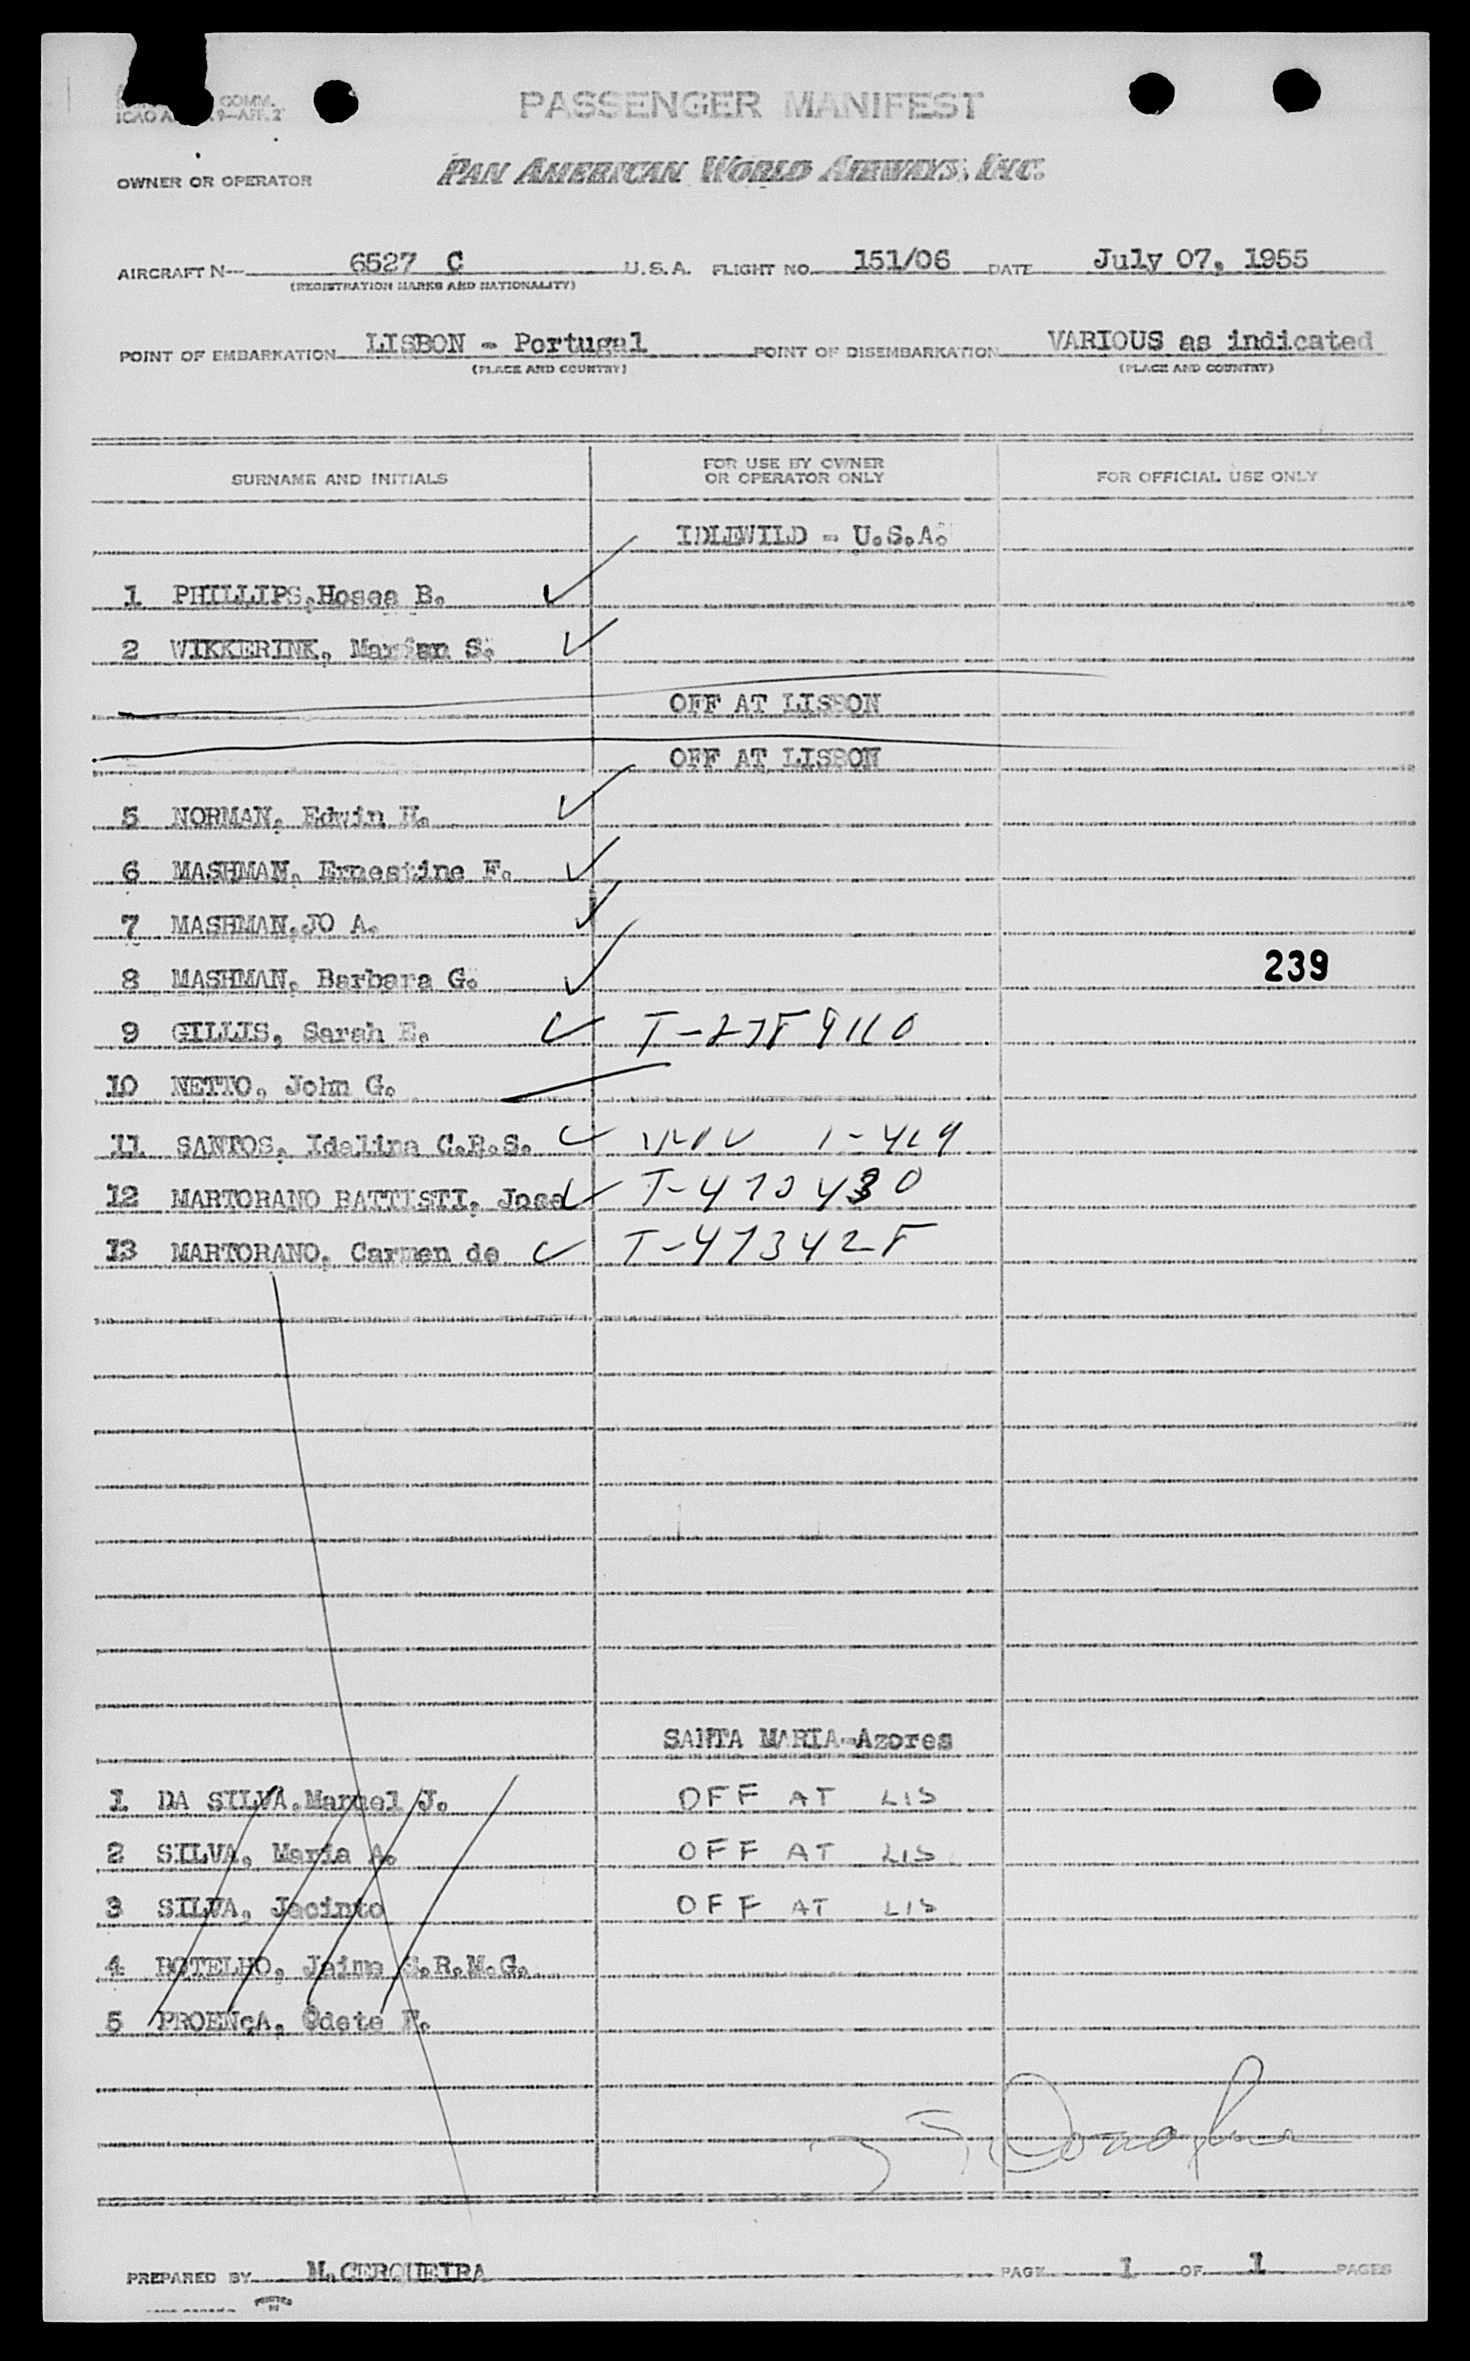 COMM.
PASSENGER MANIFEST
OWNER OR OPERATOR PAN AMERICAN WORLD AIRWAYS, INC.
AIRCRAFT N— 6527 C U.S.A. FLIGHT NO. 151/06 DATE July 07, 1955
(REGISTRATION MARKS AND NATIONALITY)
POINT OF EMBARKATION LISBON - Portugal POINT OF DISEMBARKATION VARIOUS as indicated
(PLACE AND COUNTRY) (PLACE AND COUNTRY)
SURNAME AND INITIALS FOR USE BY OWNER OR OPERATOR ONLY FOR OFFICIAL USE ONLY
IDLEWILD - U.S.A.
1 PHILLIPS, Hosea B.
2 WIKKERINK, Marian S.
OFF AT LISBON
OFF AT LISBON
5 NORMAN, Edwin H.
6 MASHMAN, Ernestine F.
7 MASHMAN, JO A.
8 MASHMAN, Barbara G. 239
9 GILLIS, Sarah E.
10 NETTO, John G.
11 SANTOS, Idalina C.R.S.
12 MARTORANO BATTISTI, Jose T-473430
13 MARTORANO, Carmen de
SANTA MARIA-Azores
1 DA SILVA, Manuel J. OFF AT LIS
2 SILVA, Maria A. OFF AT LIS
3 SILVA, Jacinto OFF AT LIS
4 BOTELHO, Jaime S.R.M.G.
5 PROENçA, Odete F.
PREPARED BY M. CERQUEIRA PAGE 1 OF 1 PAGES